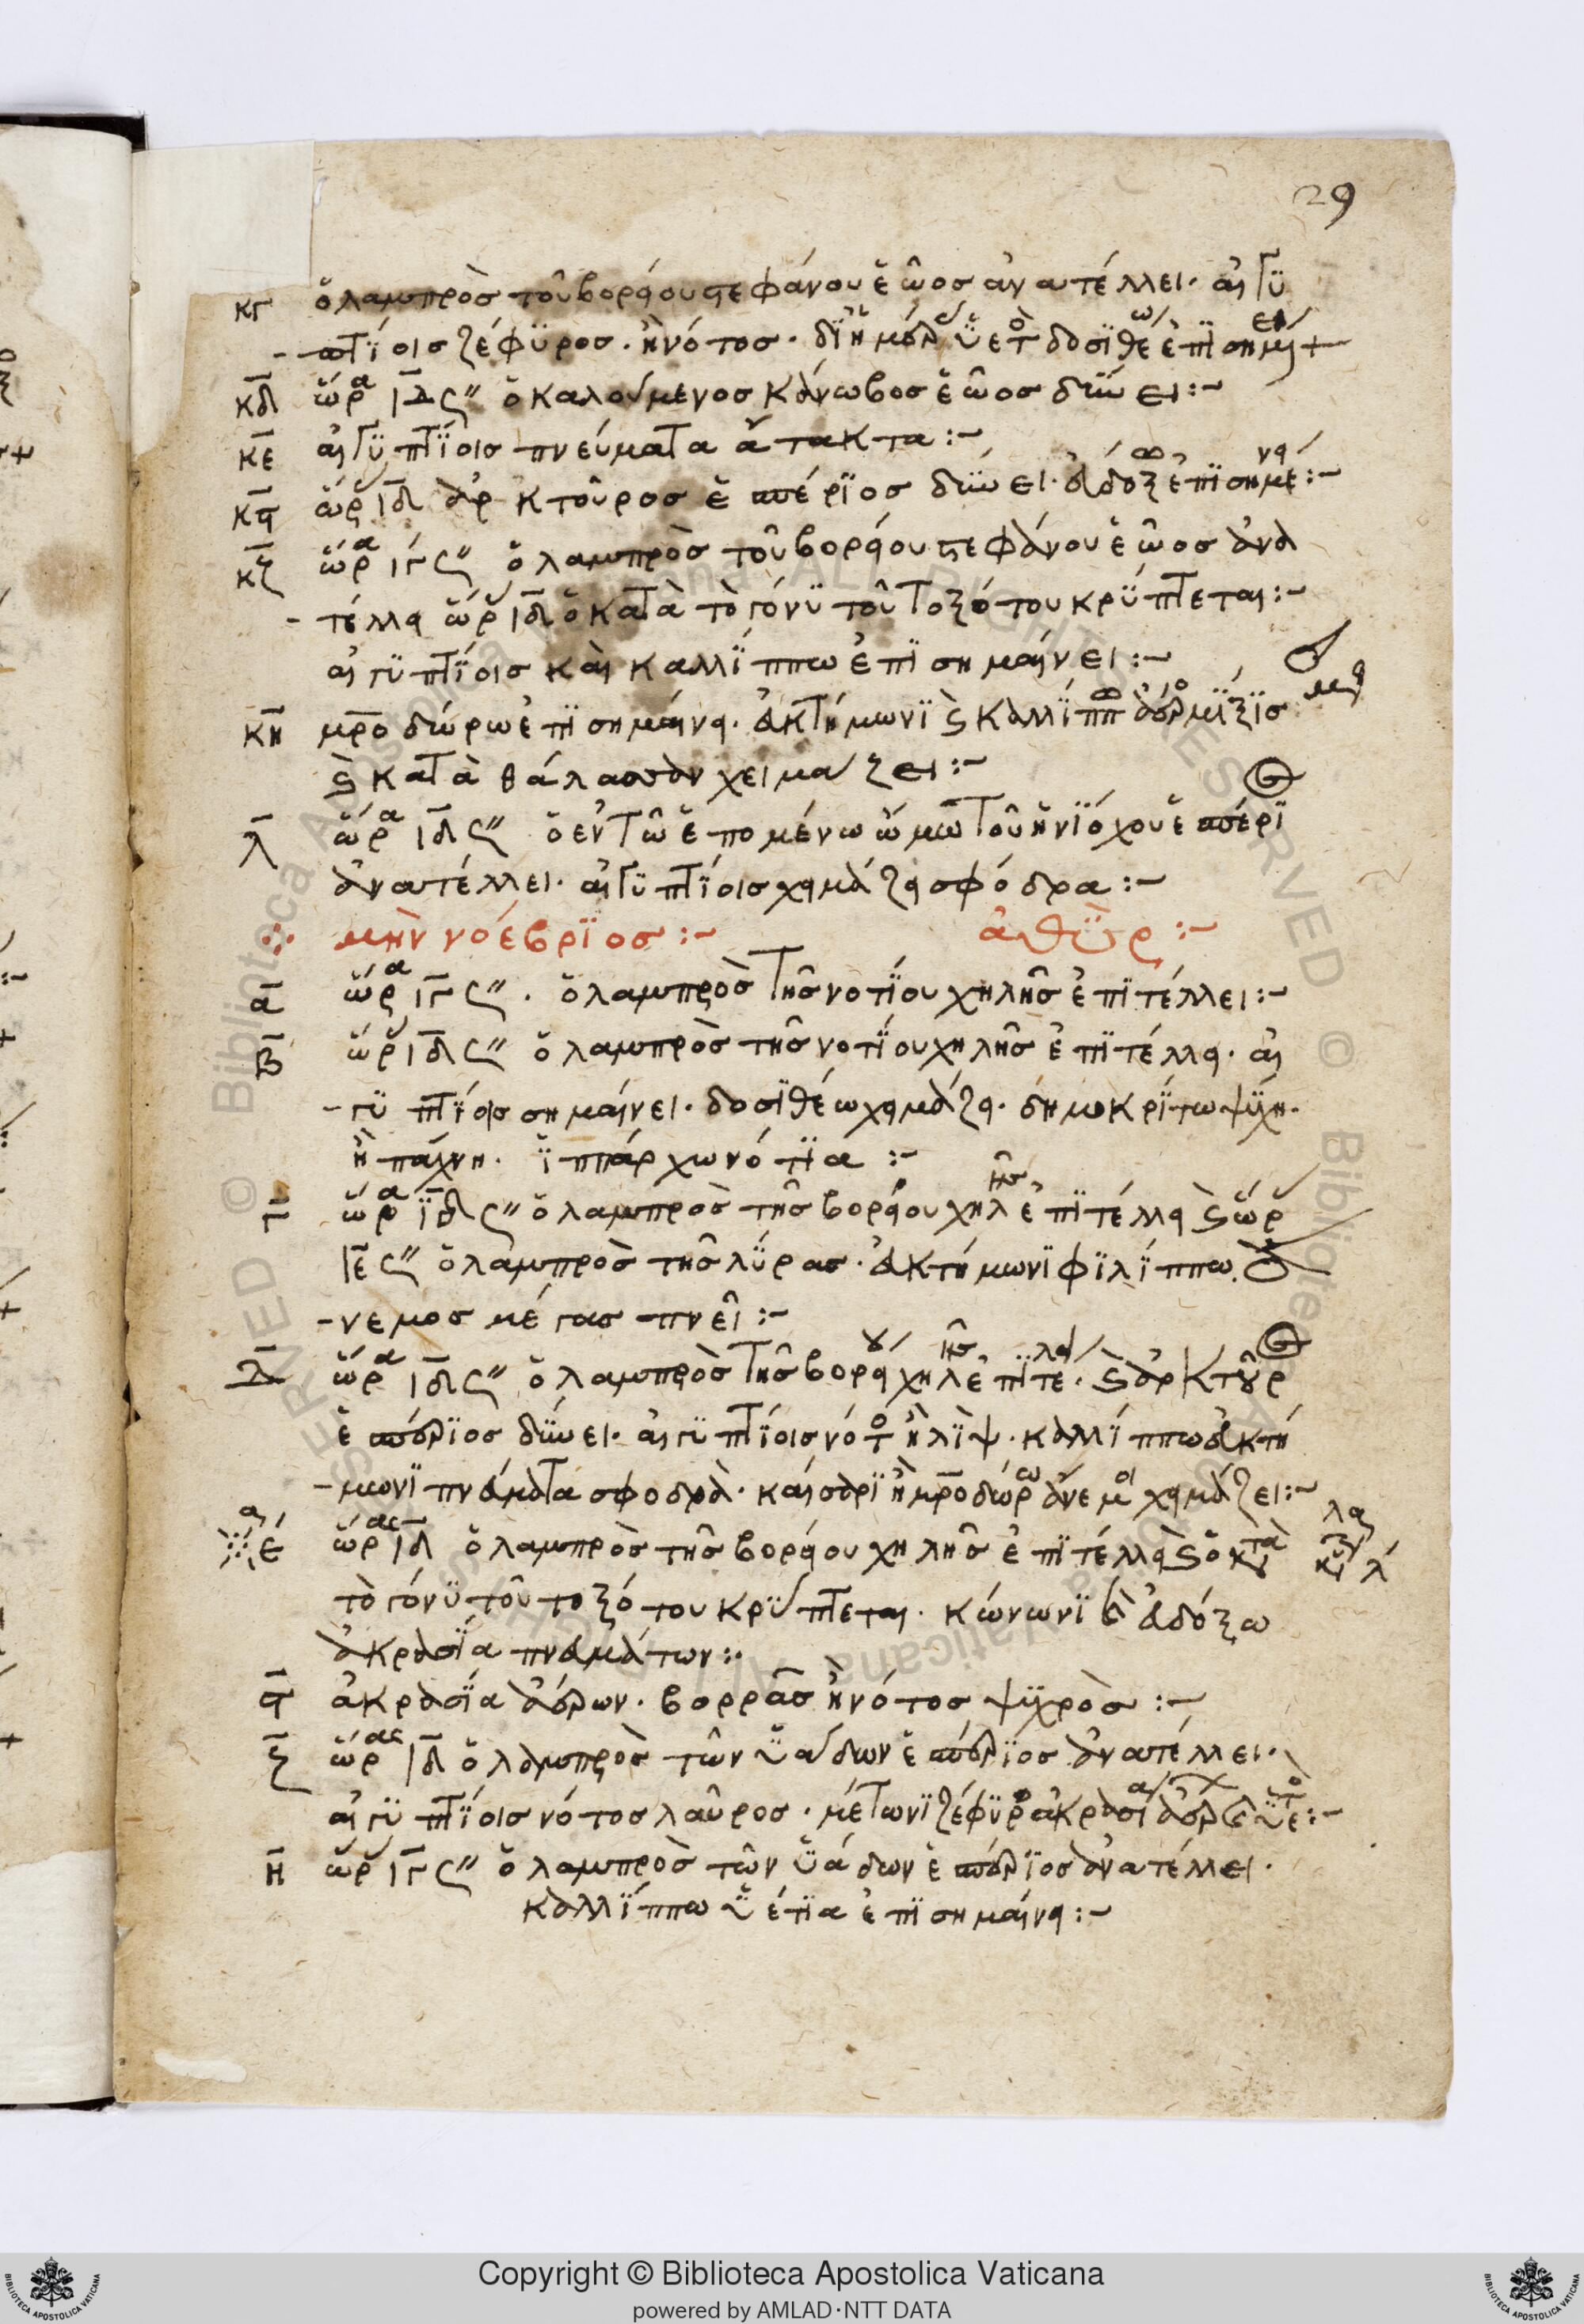 29
κγ ὁ λαμπρὸσ τοῦ βορείου στεφάνου ἑῶοσ ἀνατέλλει· αἰγϋ
-πτΐοισ ζέφϋροσ· ἢ νότοσ· δϊ ἡμέρ ὑετ δοσϊθέω ἐπϊσημαί
κδ ὥρα ιδ ς″ ὁ καλούμενοσ κάνωβοσ ἑῶοσ δύνει:~
κε αἰγϋπτΐοισ πνεύματα ἄτακτα:~
κϛ ὥρ ιδ ἀρκτοῦροσ ἑσπέρϊοσ δύνει· εὐδόξω ἐπϊσημαίνει:~
κζ ὥρα ιγ ς″ ὁ λαμπρὸσ τοῦ βορείου στεφάνου ἑῶοσ ἀνα
-τέλλει ὥρ ιδ ὁ κατὰ τὸ γόνϋ τοῦ τοξότου κρύπτεται:~
αἰγϋπτΐοισ καὶ καλλΐππω ἐπϊσημαίνει:~
κη μροδώρω ἐπϊσημαίνει· εὐκτήμωνϊ καὶ καλλΐππω ἀέρο μΐξϊσ
καὶ κατὰ θάλασσαν χειμάζει:~
λ ὥρα ιδ ς″ ὁ ἐν τῶ ἑπομένω ὤμω τοῦ ἡνϊόχου ἑσπέρϊ
ἀνατέλλει· αἰγϋπτΐοισ χειμάζει σφόδρα:~
μὴν νοέβρϊοσ:~ ἀθὺρ:~
α ὥρα ιγ ς″· ὁ λαμπρὸσ τῆσ νοτΐου χηλῆσ ἐπϊτέλλει:~
β ὥρ ιδ ς″ ὁ λαμπρὸσ τῆσ νοτΐου χηλῆσ ἐπϊτέλλει· αἰ
-γϋπτΐοισ σημαίνει· δοσϊθέω χειμάζει· δημοκρΐτω ψύχη·
ἢ πάχνη· ἱππάρχω νότϊα:~
γ ὥρα ιδ ς″ ὁ λαμπρὸσ τῆσ βορείου χηλῆσ ἐπϊτέλλει καὶ ὥρ
ιε ς″ ὁ λαμπρὸσ τῆσ λύρασ· εὐκτήμωνϊ φϊλΐππω ἄ
-νεμοσ μέγασ πνεῖ:~
δ ὥρα ιδ ς″ ὁ λαμπρὸσ τῆσ βορείου χηλῆσ ἐπϊτέλλει· καὶ ἀρκτοῦρ
ἑσπέρϊοσ δύνει· αἰγϋπτΐοισ νότο ἢ λΐψ· καλλΐππω εὐκτή
-μωνϊ πνεύματα σφοδρά· καίσαρϊ ἢ μροδώρω ἄνεμοι χειμάζει:~
ε ὥρας ιδ ὁ λαμπρὸσ τῆσ βορείου χηλῆσ ἐπϊτέλλει καὶ ὁ κατὰ
τὸ γόνϋ τοῦ τοξότου κρύπτεται· κώνωνϊ εὐδόξω
ἀκρασΐα πνευμάτων:·
ϛ ἀκρασΐα ἀέρων· βορρᾶσ ἢ νότοσ ψϋχρὸσ:~
ζ ὥρας ιδ ὁ λαμπρὸσ τῶν ὑάδων ἑσπέρϊοσ ἀνατέλλει·
αἰγϋπτΐοισ νότοσ λαῦροσ· μέτωνϊ ζέφϋρο ἀκρασΐα ἀέρ ὑετο:~
η ὥρ ιγ ς″ ὁ λαμπρὸσ τῶν ὑάδων ἑσπέρϊοσ ἀνατέλλει·
καλλΐππω ὑέτϊα ἐπϊσημαίνει:~
Copyright © Biblioteca Apostolica Vaticana
powered by AMLAD·NTT DATA